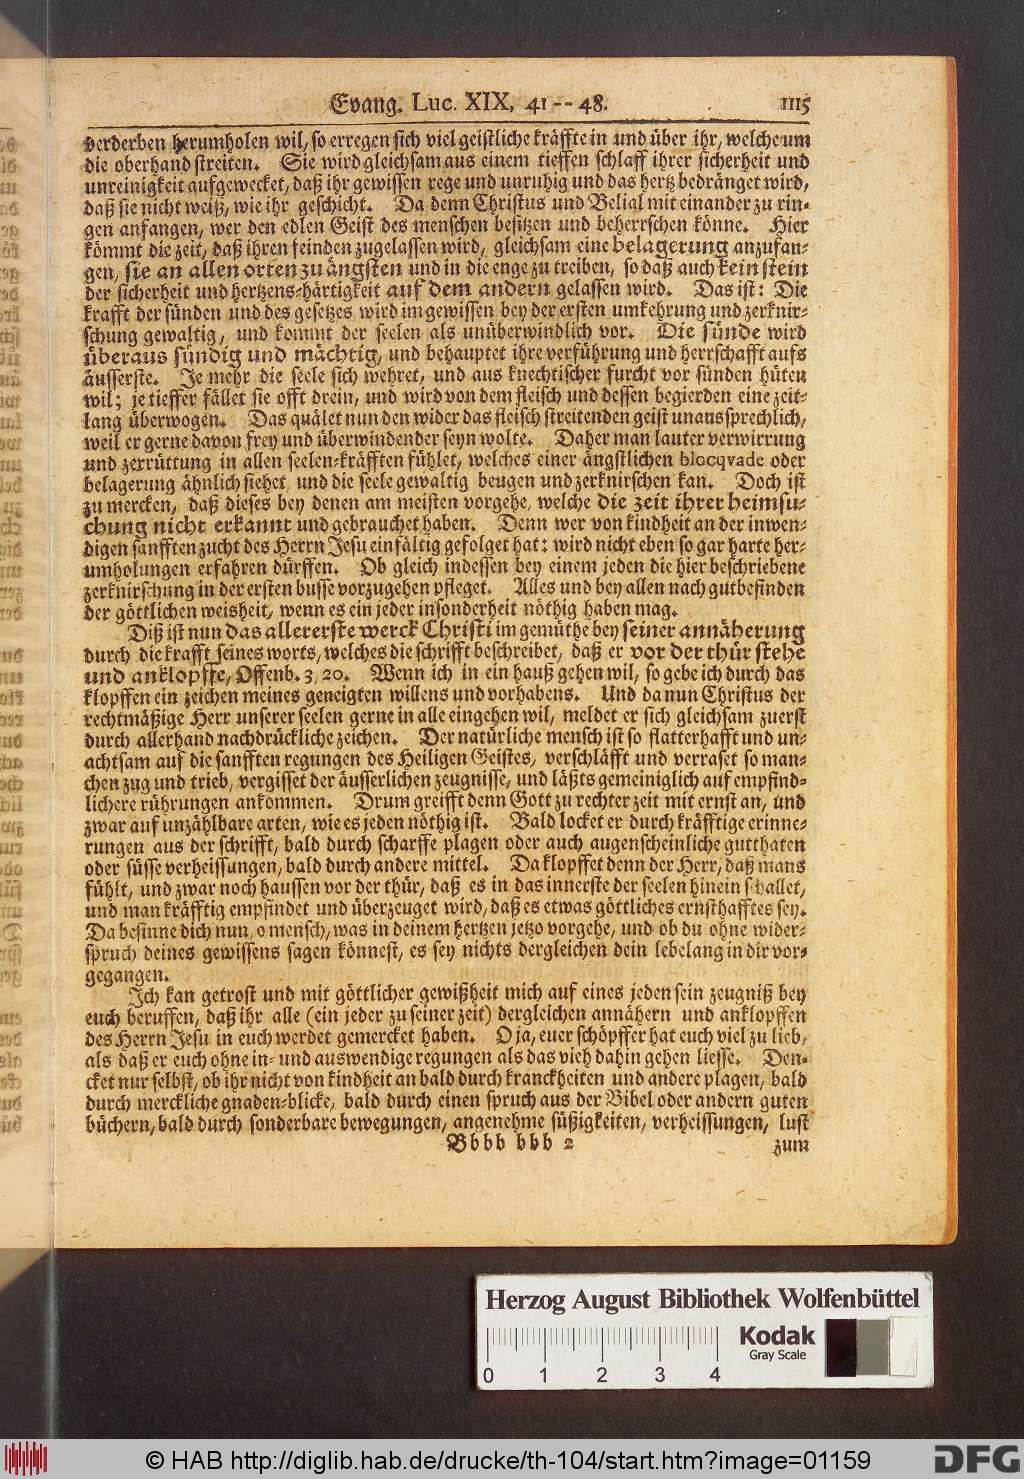 Evang. Luc. XIX, 41 -- 48. 1115
verderben herumholen wil, so erregen sich viel geistliche kräffte in und über ihr, welche um
die oberhand streiten. Sie wird gleichsam aus einem tieffen schlaff ihrer sicherheit und
unreinigkeit aufgewecket, daß ihr gewissen rege und unruhig und das hertz bedränget wird,
daß sie nicht weiß, wie ihr geschicht. Da denn Christus und Belial mit einander zu rin-
gen anfangen, wer den edlen Geist des menschen besitzen und beherrschen könne. Hier
kömmt die zeit, daß ihren feinden zugelassen wird, gleichsam eine belagerung anzufan-
gen, sie an allen orten zu ängsten und in die enge zu treiben, so daß auch kein stein
der sicherheit und hertzens-härtigkeit auf dem andern gelassen wird. Das ist: Die
krafft der sünden und des gesetzes wird im gewissen bey der ersten umkehrung und zerknir-
schung gewaltig, und kommt der seelen als unüberwindlich vor. Die sünde wird
überaus sündig und mächtig, und behauptet ihre verführung und herrschafft aufs
äusserste. Je mehr die seele sich wehret, und aus knechtischer furcht vor sünden hüten
wil; je tieffer fället sie offt drein, und wird von dem fleisch und dessen begierden eine zeit-
lang überwogen. Das quälet nun den wider das fleisch streitenden geist unaussprechlich,
weil er gerne davon frey und überwindender seyn wolte. Daher man lauter verwirrung
und zerrüttung in allen seelen-kräfften fühlet, welches einer ängstlichen blocqvade oder
belagerung ähnlich siehet, und die seele gewaltig beugen und zerknirschen kan. Doch ist
zu mercken, daß dieses bey denen am meisten vorgehe, welche die zeit ihrer heimsu-
chung nicht erkannt und gebrauchet haben. Denn wer von kindheit an der inwen-
digen sanfften zucht des Herrn Jesu einfältig gefolget hat: wird nicht eben so gar harte her-
umholungen erfahren dürffen. Ob gleich indessen bey einem jeden die hier beschriebene
zerknirschung in der ersten busse vorzugehen pfleget. Alles und bey allen nach gutbefinden
der göttlichen weisheit, wenn es ein jeder insonderheit nöthig haben mag.
Diß ist nun das allererste werck Christi im gemüthe bey seiner annäherung
durch die krafft seines worts, welches die schrifft beschreibet, daß er vor der thür stehe
und anklopffe, Offenb. 3, 20. Wenn ich in ein hauß gehen wil, so gebe ich durch das
klopffen ein zeichen meines geneigten willens und vorhabens. Und da nun Christus der
rechtmäßige Herr unserer seelen gerne in alle eingehen wil, meldet er sich gleichsam zuerst
durch allerhand nachdrückliche zeichen. Der natürliche mensch ist so flatterhafft und un-
achtsam auf die sanfften regungen des Heiligen Geistes, verschläfft und verraset so man-
chen zug und trieb, vergisset der äusserlichen zeugnisse, und läßts gemeiniglich auf empfind-
lichere rührungen ankommen. Drum greifft denn Gott zu rechter zeit mit ernst an, und
zwar auf unzählbare arten, wie es jeden nöthig ist. Bald locket er durch kräfftige erinne-
rungen aus der schrifft, bald durch scharffe plagen oder auch augenscheinliche gutthaten
oder süsse verheissungen, bald durch andere mittel. Da klopffet denn der Herr, daß mans
fühlt, und zwar noch haussen vor der thür, daß es in das innerste der seelen hinein schallet,
und man kräfftig empfindet und überzeuget wird, daß es etwas göttliches ernsthafftes sey.
Da besinne dich nun, o mensch, was in deinem hertzen jetzo vorgehe, und ob du ohne wider-
spruch deines gewissens sagen könnest, es sey nichts dergleichen dein lebelang in dir vor-
gegangen.
Ich kan getrost und mit göttlicher gewißheit mich auf eines jeden sein zeugniß bey
euch beruffen, daß ihr alle (ein jeder zu seiner zeit) dergleichen annähern und anklopffen
des Herrn Jesu in euch werdet gemercket haben. O ja, euer schöpffer hat euch viel zu lieb,
als daß er euch ohne in- und auswendige regungen als das vieh dahin gehen liesse. Den-
cket nur selbst, ob ihr nicht von kindheit an bald durch kranckheiten und andere plagen, bald
durch merckliche gnaden-blicke, bald durch einen spruch aus der Bibel oder andern guten
büchern, bald durch sonderbare bewegungen, angenehme süßigkeiten, verheissungen, lust
Bbbb bbb 2 zum
Herzog August Bibliothek Wolfenbüttel
Kodak
Gray Scale
0 1 2 3 4
© HAB http://diglib.hab.de/drucke/th-104/start.htm?image=01159
DFG